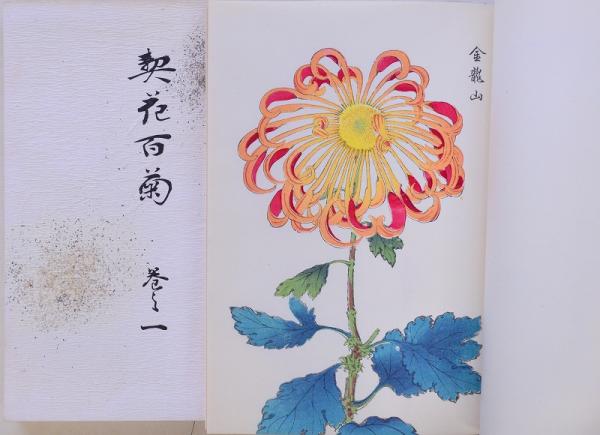 契花百菊
巻之一
金龍山